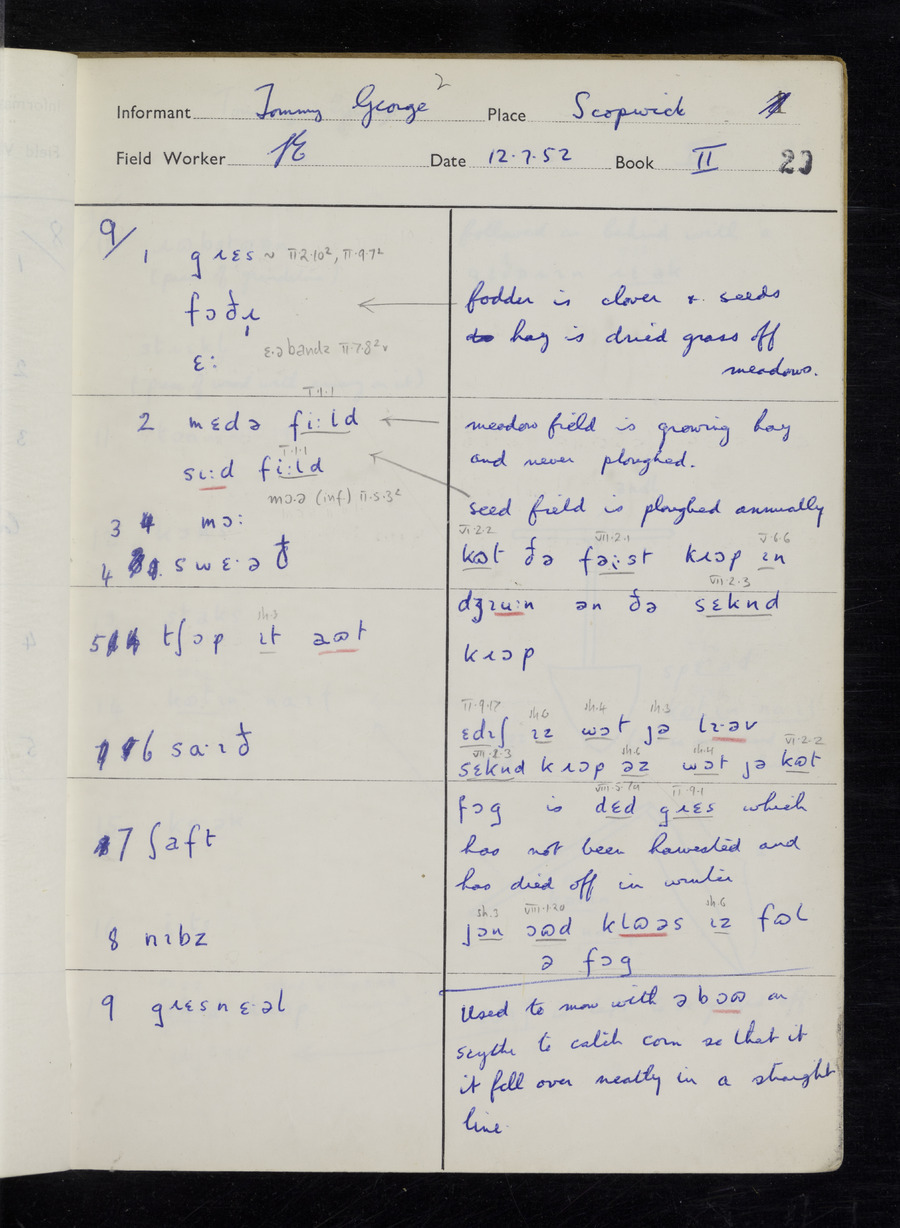 Informant Tommy George 2 Place Scopwick
Field Worker Date 12.7.52 Book II 20
9/
1 gɹɛs ~ II.2.10², II.9.7²
fɔðɹ̩
ɛ: ɛ·ə bandz II.7.8² v
fodder is clover & seeds
hay is dried grass off
meadows.
I.1.1
2 mɛdə fi:ld
I.1.1
sɪ:d fi:ld
mɔ·ə (inf.) II.5.3²
3 mɔ:
4 swɛ·əð
meadow field is growing hay
and never ploughed.
seed field is ploughed annually
VI.2.2 VII.2.1 V.6.6
kɷt ðə fə:st kɹɔp ɪn
VII.2.3
dʒɪu:n ən ðə sɛknd
kɹɔp
sh.3
5 tʃɔp ɪt əɷt
6 sa·ɪð
II.9.17 sh.6 sh.4 sh.3
ɛdɪʃ ɪz wɔt jə lɪ·əv
VII.2.3 sh.6 sh.4 VI.2.2
sɛknd kɹɔp əz wɔt jə kɷt
7 ʃaft
VIII.5.7a II.9.1
fɔg is dɛd gɹɛs which
has not been harvested and
has died off in winter
8 nɪbz
sh.3 VIII.1.20 sh.6
jən ɔɷd klɷəs ɪz fɷl
ə fɔg
9 gɹɛsnɛ·əl
Used to mow with ə bɔɷ on
scythe to catch corn so that it
it fell over neatly in a straight
line.